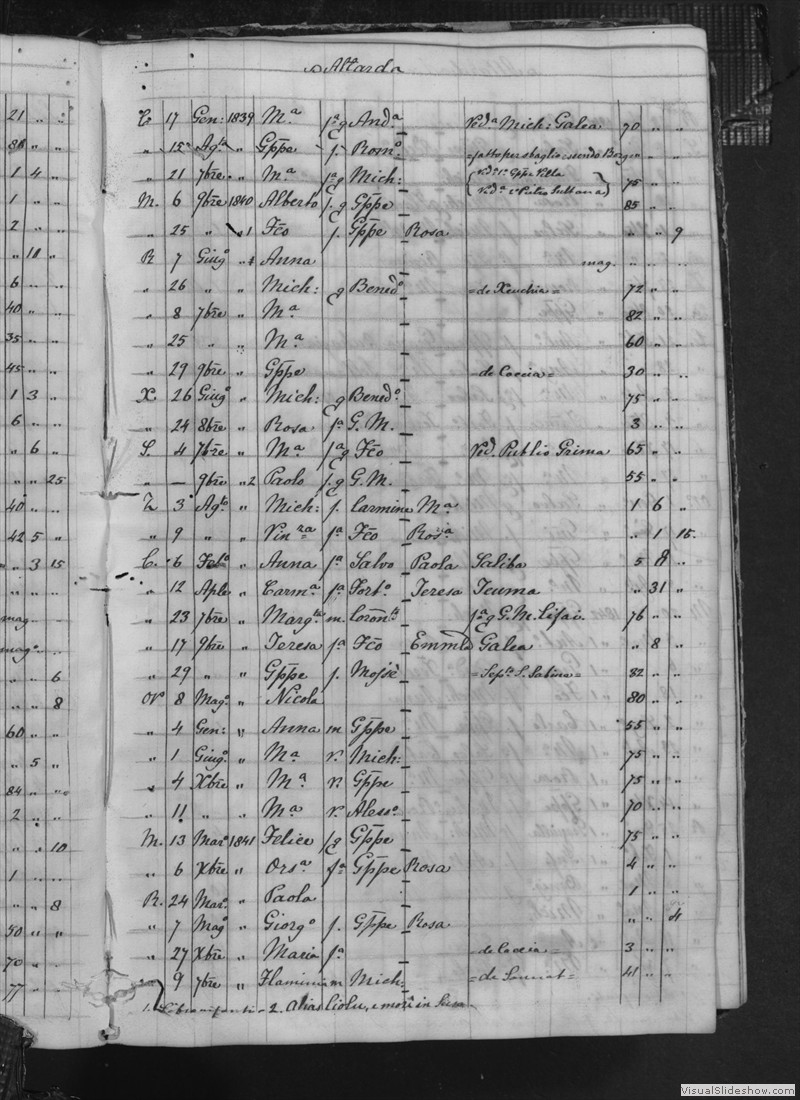 Attarda
21 " " C. 17 Gen: 1839 Mª fª g Andª Vedª Mich: Galea 70 " "
" 15 Agto " Gppe f. Romo =fatto per sbaglio essendo Borg= " "
1 4 " " 21 7bre " Mª fª g Mich: Vedª 1º Gppe Vella Vedª 2º Pietro Sultana 75 " "
1 " " M. 6 9bre 1840 Alberto f. g Gppe 85 " "
2 " " " 25 " " 1 Fco f. Gppe Rosa " " 9
" 10 " R 7 Giugo Anna mag. " "
6 " " " 26 " " Mich: g Bened.o =de Xeuchia= 72 " "
40 " " " 8 7bre " Mª 82 " "
35 " " " 25 " " Mª 60 " "
45 " " " 29 9bre " Gppe =de Coccia= 30 " "
1 3 " X. 26 Giugo " Mich: g Bened.o 75 " "
6 " " " 24 8bre " Rosa fª G. M. 3 " "
" 6 " S. 4 7bre " Mª fª g Fco Ved. Publio Grima 65 " "
" " 25 " — 9bre " 2 Paolo f. g G. M. 55 " "
40 " " Z 3 Agto " Mich: f. Carmine Mª 1 6 "
42 5 " " 9 " " Vinza fª Fco Rosª " 1 15
" 3 15 C. 6 " Anna fª Salvo Paola Saliba 5 8 "
" " " " 12 Aple " Carmª fª Forto Teresa Icuma " 31 "
mag " 23 7bre " Margta m. Coronto fª g G. M. Lifai 76 " "
mag " " 17 9bre " Teresa fª Fco Emmla Galea " 8 "
" " 6 " 29 " " Gppe f. Mosse =Sepo. S. Sabina= 82 " "
" " 8 N 8 Mago " Nicola 80 " "
60 " " " 4 Gen: " Anna m Gppe 55 " "
" 5 " " 1 Giugo " Mª v. Mich: 75 " "
84 " " " 4 Xbre " Mª v. Gppe 75 " "
2 " " " 11 " " Mª v. Alesso 70 " "
" " 10 M. 13 Maro 1841 Felice f g Gppe 75 " "
1 " " " 6 Xbre " Orsª fª Gppe Rosa 4 " "
" " 8 R. 24 Maro " Paola 1 " "
50 " " " 7 Mago " Giorgo f. Gppe Rosa " " 4
70 " " 27 Xbre " Maria fª =de Coccia= 3 " "
77 " " " 9 7bre " Flaminia m Mich: =de Sannat= 41 " "
2. alias Ciolu, e morì in Susa
VisualSlideshow.com